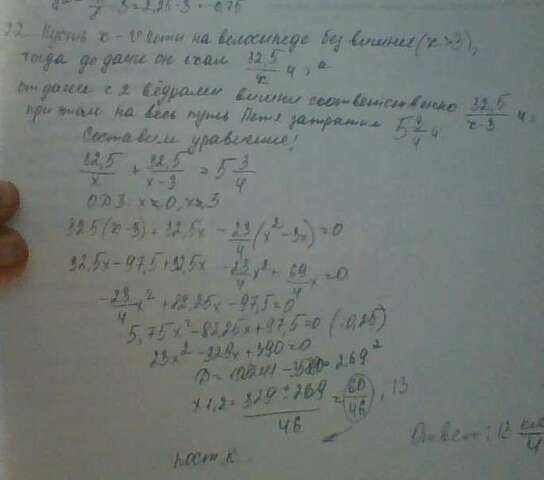 y = -3 = 2,25-3 = -0,75
22. Пусть x - V Пети на велосипеде без вишни (x > 3),
тогда до дачи он ехал 32,5/x ч, а
от дачи с 2 вёдрами вишни соответственно 32,5/x-3 ч,
при этом на весь путь Петя затратил 5 3/4 ч
Составим уравнение:
32,5/x + 32,5/x-3 = 5 3/4
ОДЗ: x ≠ 0, x ≠ 3
32,5(x-3) + 32,5x - 23/4(x²-3x) = 0
32,5x - 97,5 + 32,5x - 23/4x² + 69/4x = 0
-23/4x² + 82,25x - 97,5 = 0
5,75x² - 82,25x + 97,5 = 0 (:0,25)
23x² - 329x + 390 = 0
D = = 269²
x1,2 = 329 ± 269/46 = 60/46, 13
пост. к.
Ответ: 13 км/ч